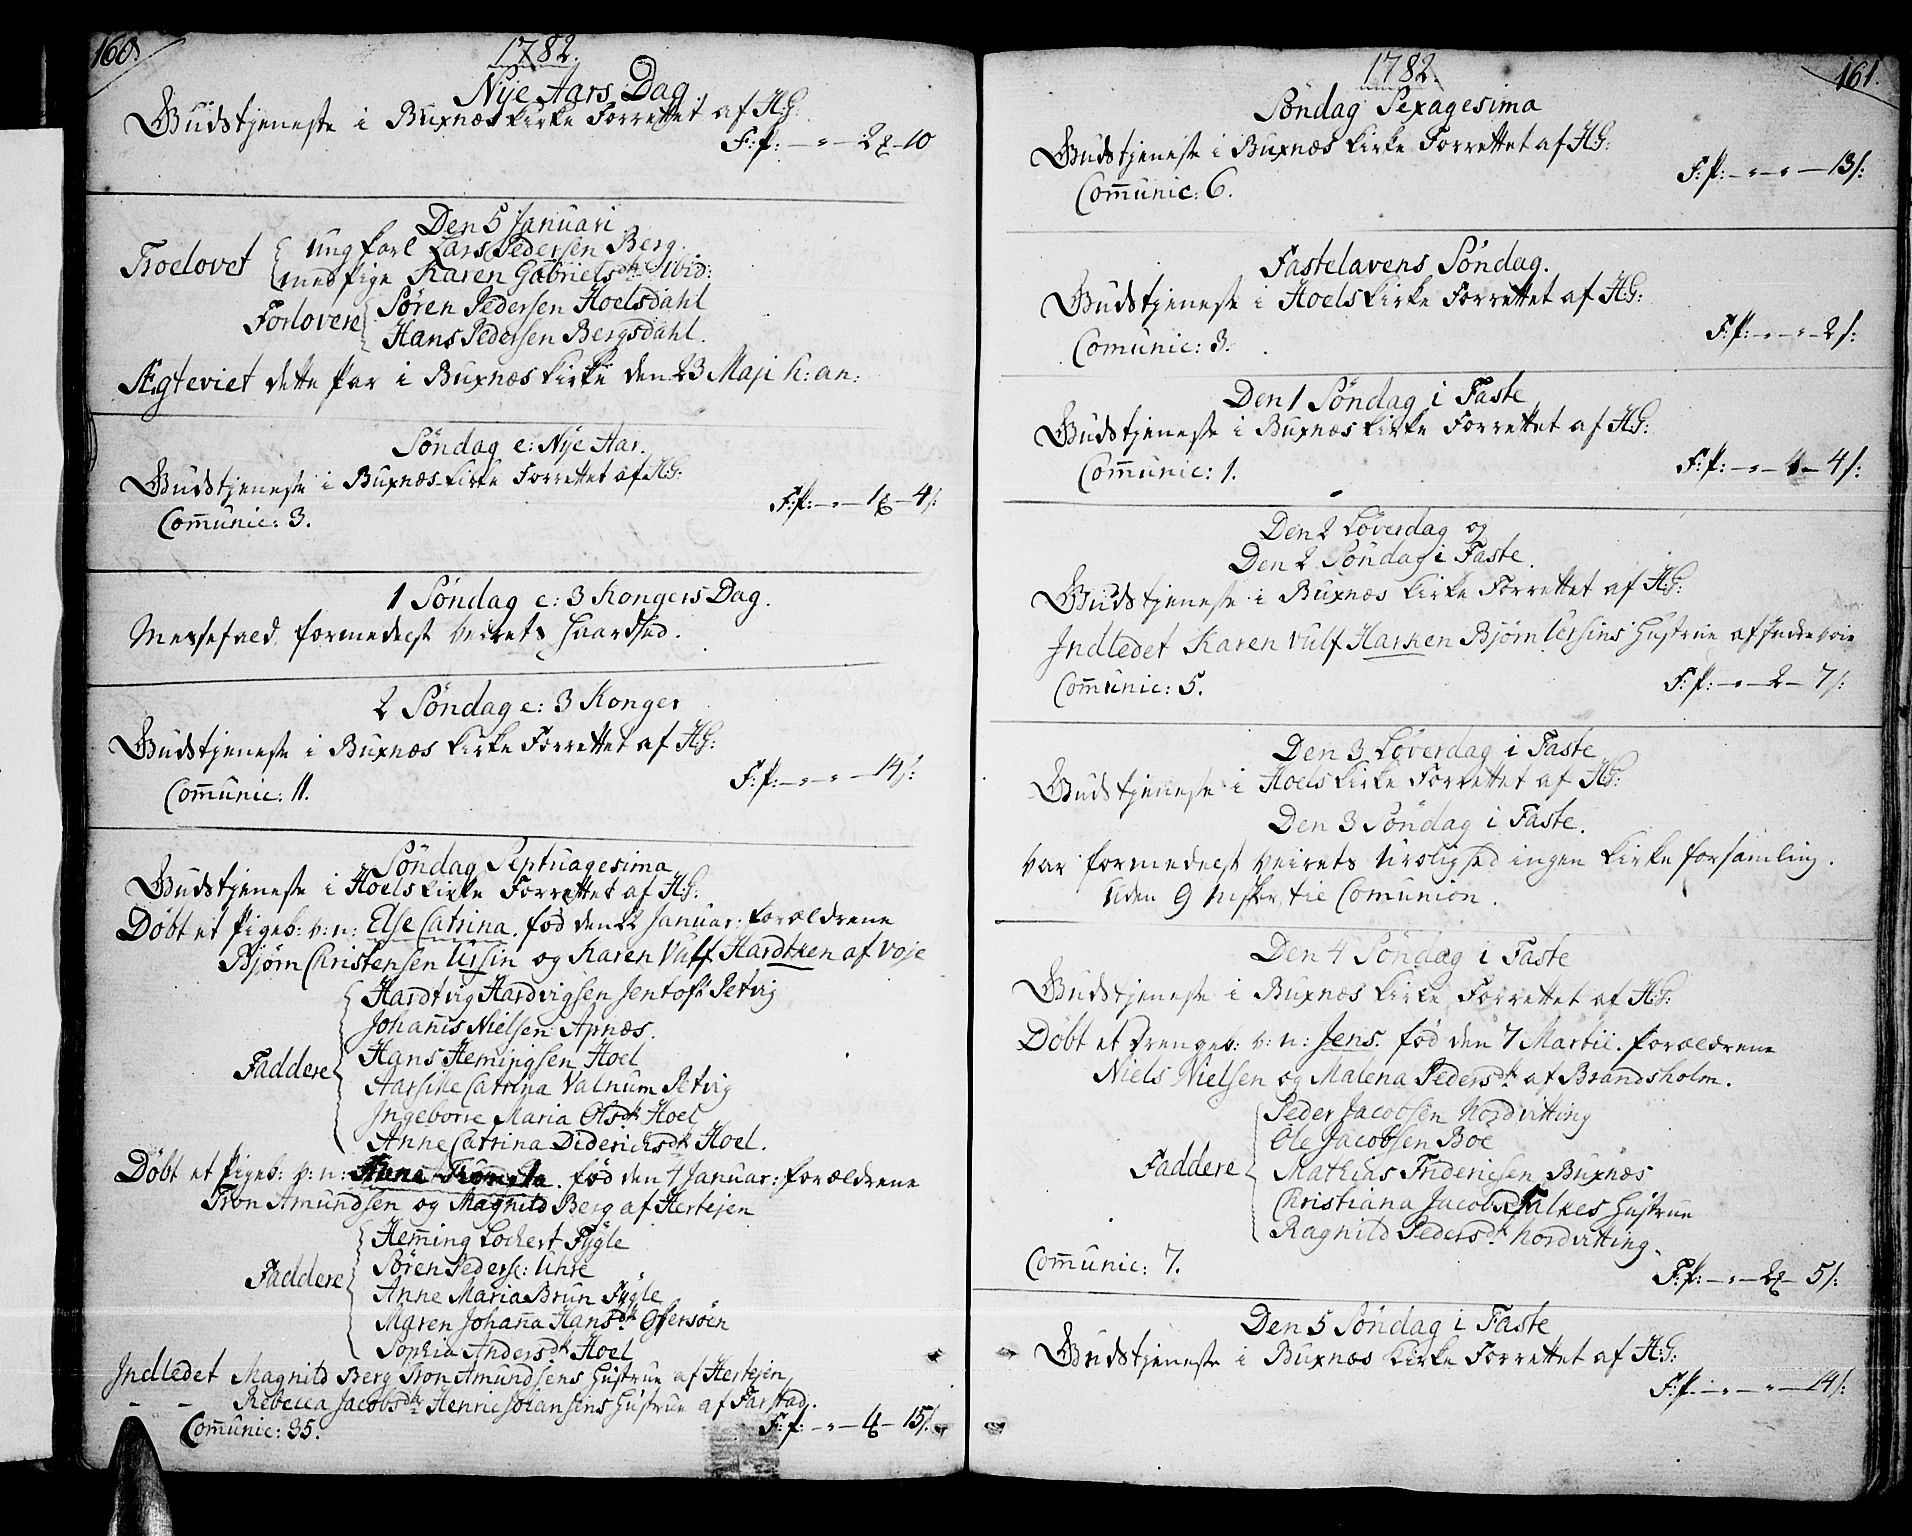 160
1782.
Nye Aars Dag
Gudstjeneste i Buxnæs kirke Forrettet af H:G:
F:p: — " — 2 — 10
Den 5 Januari
Troelovet ung karl Lars Pedersen Berg.
med pige Karen Gabrielsdr ibid:
Forlovere Søren Pedersen Hoelsdahl
Hans Pedersen Bergsdahl.
Ægteviet dette par i Buxnæs kirke den 23 Maji h: an:
Søndag e: Nye Aar.
Gudstjeneste i Buxnæs kirke Forrettet af H:G:
F:p: — " — 1 — 4 s:
Comunic: 3.
1 Søndag e: 3 Kongers Dag.
Messefald formedelst Veirets haardhed.
2 Søndag e: 3 Konger
Gudstjeneste i Buxnæs kirke Forrettet af H:G:
F:p: — " — " — 14 s:
Comunic: 11.
Søndag Septuagesima
Gudstjeneste i Hoels kirke Forrettet af H:G:
Døbt et Pigeb: v: n: Else Catrina. fød den 22 Januar: Forældrene
Bjørn Christensen Ursin og Karen Vulf Hardtken af Voje
Hardtvig Hardvigsen Jentoft Petvig
Johanis Nielsen Apnæs.
Faddere Hans Hemingsen Hoel
Catrina Valnum Petvig
Ingeborre Maria Olsdr Hoel
Anne Catrina Diderichsdr Hoel.
Døbt et Pigeb: v: n: fød den 4 Januar: forældrene
Tron Amundsen og Magnild Berg af Hertejen
Hemming Lochert Fygle
Faddere Søren Peders: Uhre
Anne Maria Brun Fygle
Maren Johanna Hansdr Ofersøen
Sophia Andersdr Hoel
Indledet Magnild Berg Tron Amundsens hustrue af Hertejen
– – Rebecca Jacobsdr Henric Johansens hustrue af Farstad.
Comunic: 35. F:p: — " — 4 — 15 s:
161.
1782.
Søndag Sexagesima
Gudstjeneste i Buxnæs kirke Forrettet af H:G:
F:p: — " — " — 13 s:
Comunic: 6.
Fastelavens Søndag.
Gudstjeneste i Hoels kirke Forrettet af H:G:
F:p: — " — " — 2 s:
Comunic: 3.
Den 1 Søndag i Faste
Gudstjeneste i Buxnæs kirke Forrettet af H:G:
F:p: — " — 4 — 4 s:
Comunic: 1.
Den 2 Løverdag og
Den 2 Søndag i Faste.
Gudstjeneste i Buxnæs kirke Forrettet af H:G:
Indledet Karen Vulf Harken Bjørn Ursins hustrue af Indre Voie
Comunic: 5. F:p: — " — 2 — 7 s:
Den 3 Løverdag i Faste
Gudstjeneste i Hoels kirke Forrettet af H:G:
Den 3 Søndag i Faste.
var formedelst veirets urolighed ingen kirke forsamling.
uden 9 til Comunion.
Den 4 Søndag i Faste
Gudstjeneste i Buxnæs kirke Forrettet af H:G:
Døbt et Drengeb: v: n: Jens. fød den 7 Martii. forældrene
Niels Nielsen og Malena Pedersdr af Brandsholm.
Peder Jacobsen Nordvitting
Ole Jacobsen Boe
Faddere Mathias Fridericsen Buxnæs
Christiana Jacob Falkes hustrue
Ragnild Pedersdr Nordvitting.
Comunic: 7.
F:p: — " — 2 — 5 s:
Den 5 Søndag i Faste
Gudstjeneste i Buxnæs kirke Forrettet af H:G:
F:p: — " — " — 14 s: